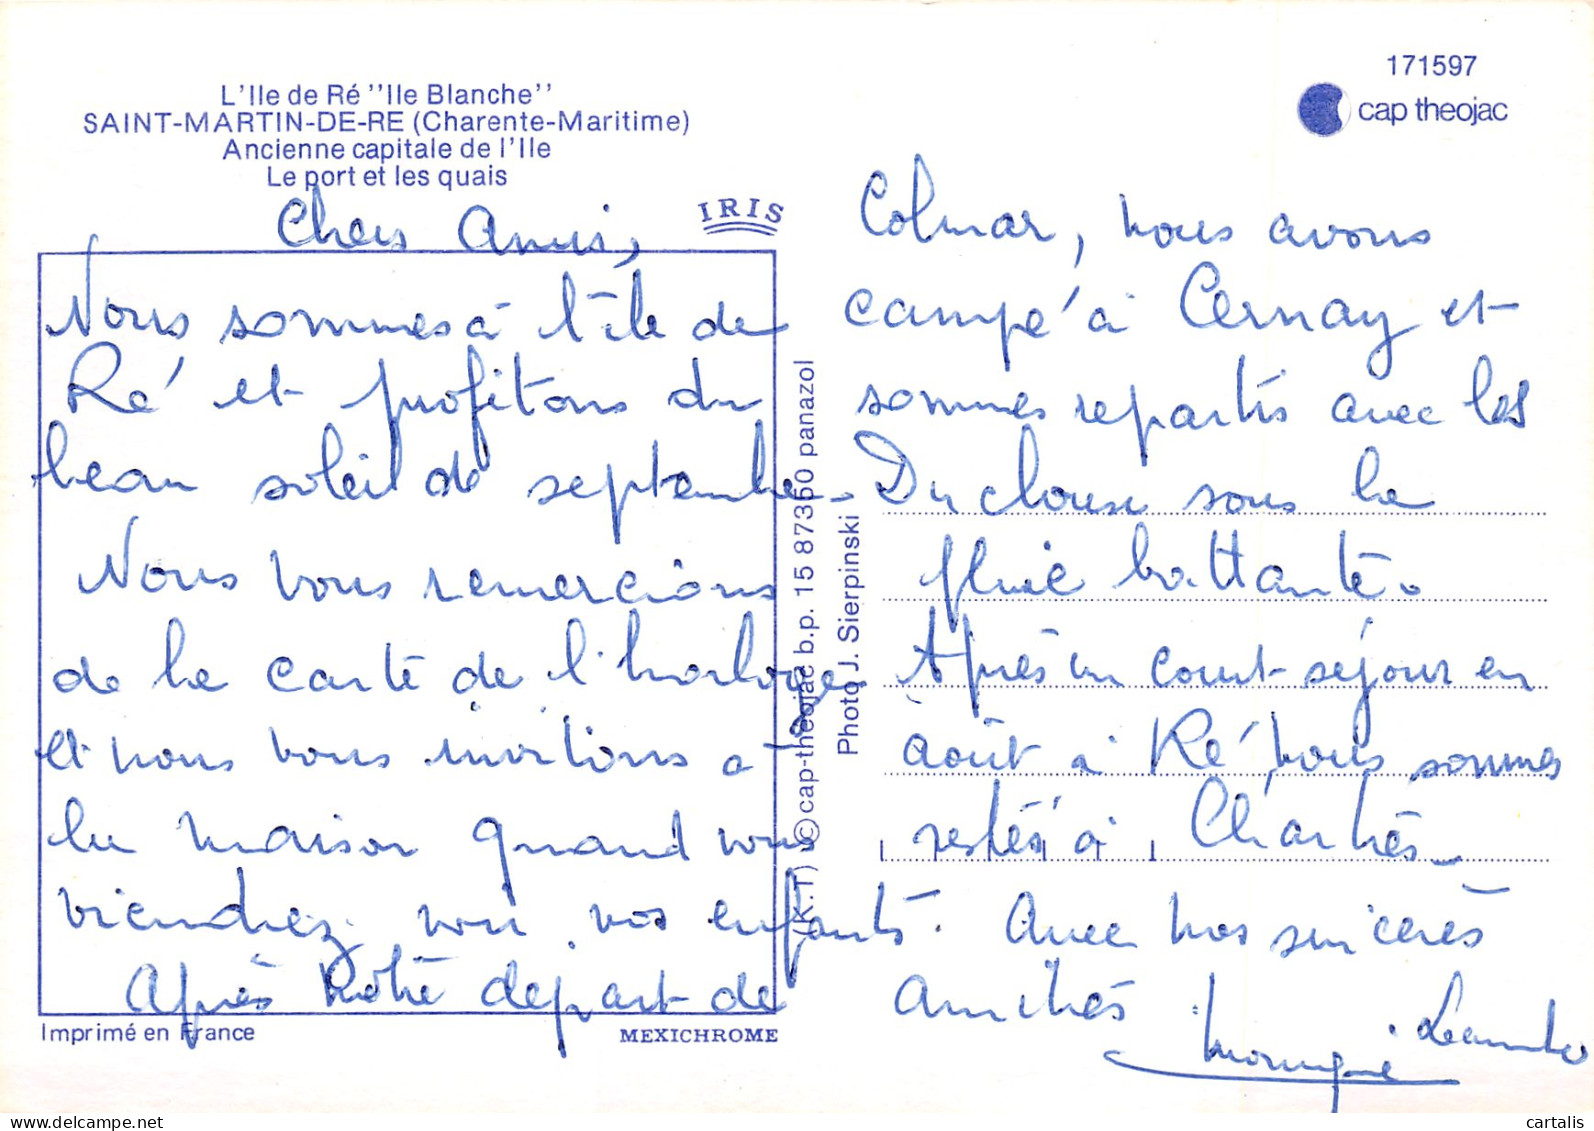 L'Ile de Ré "Ile Blanche"
SAINT-MARTIN-DE-RE (Charente-Maritime)
Ancienne capitale de l'Ile
Le port et les quais
IRIS
171597
cap theojac
Chers Amis,
Nous sommes à l'île de
Ré et profitons du
beau soleil de septembre -
Nous vous remercions
de la carte de l'horloge
et nous vous invitons à
la maison quand vous
viendrez voir vos enfants.
Après notre départ de
Colmar, nous avons
campé à Cernay et
sommes repartis avec les
Duclouse sous la
pluie battante.
Après un court séjour en
août à Ré, nous sommes
restés à Chartres -
Avec nos sincères
amitiés
Monique
(K.T) © cap-theojac b.p. 15 87350 panazol
Photo J. Sierpinski
Imprimé en France
MEXICHROME
delcampe.net
cartalis